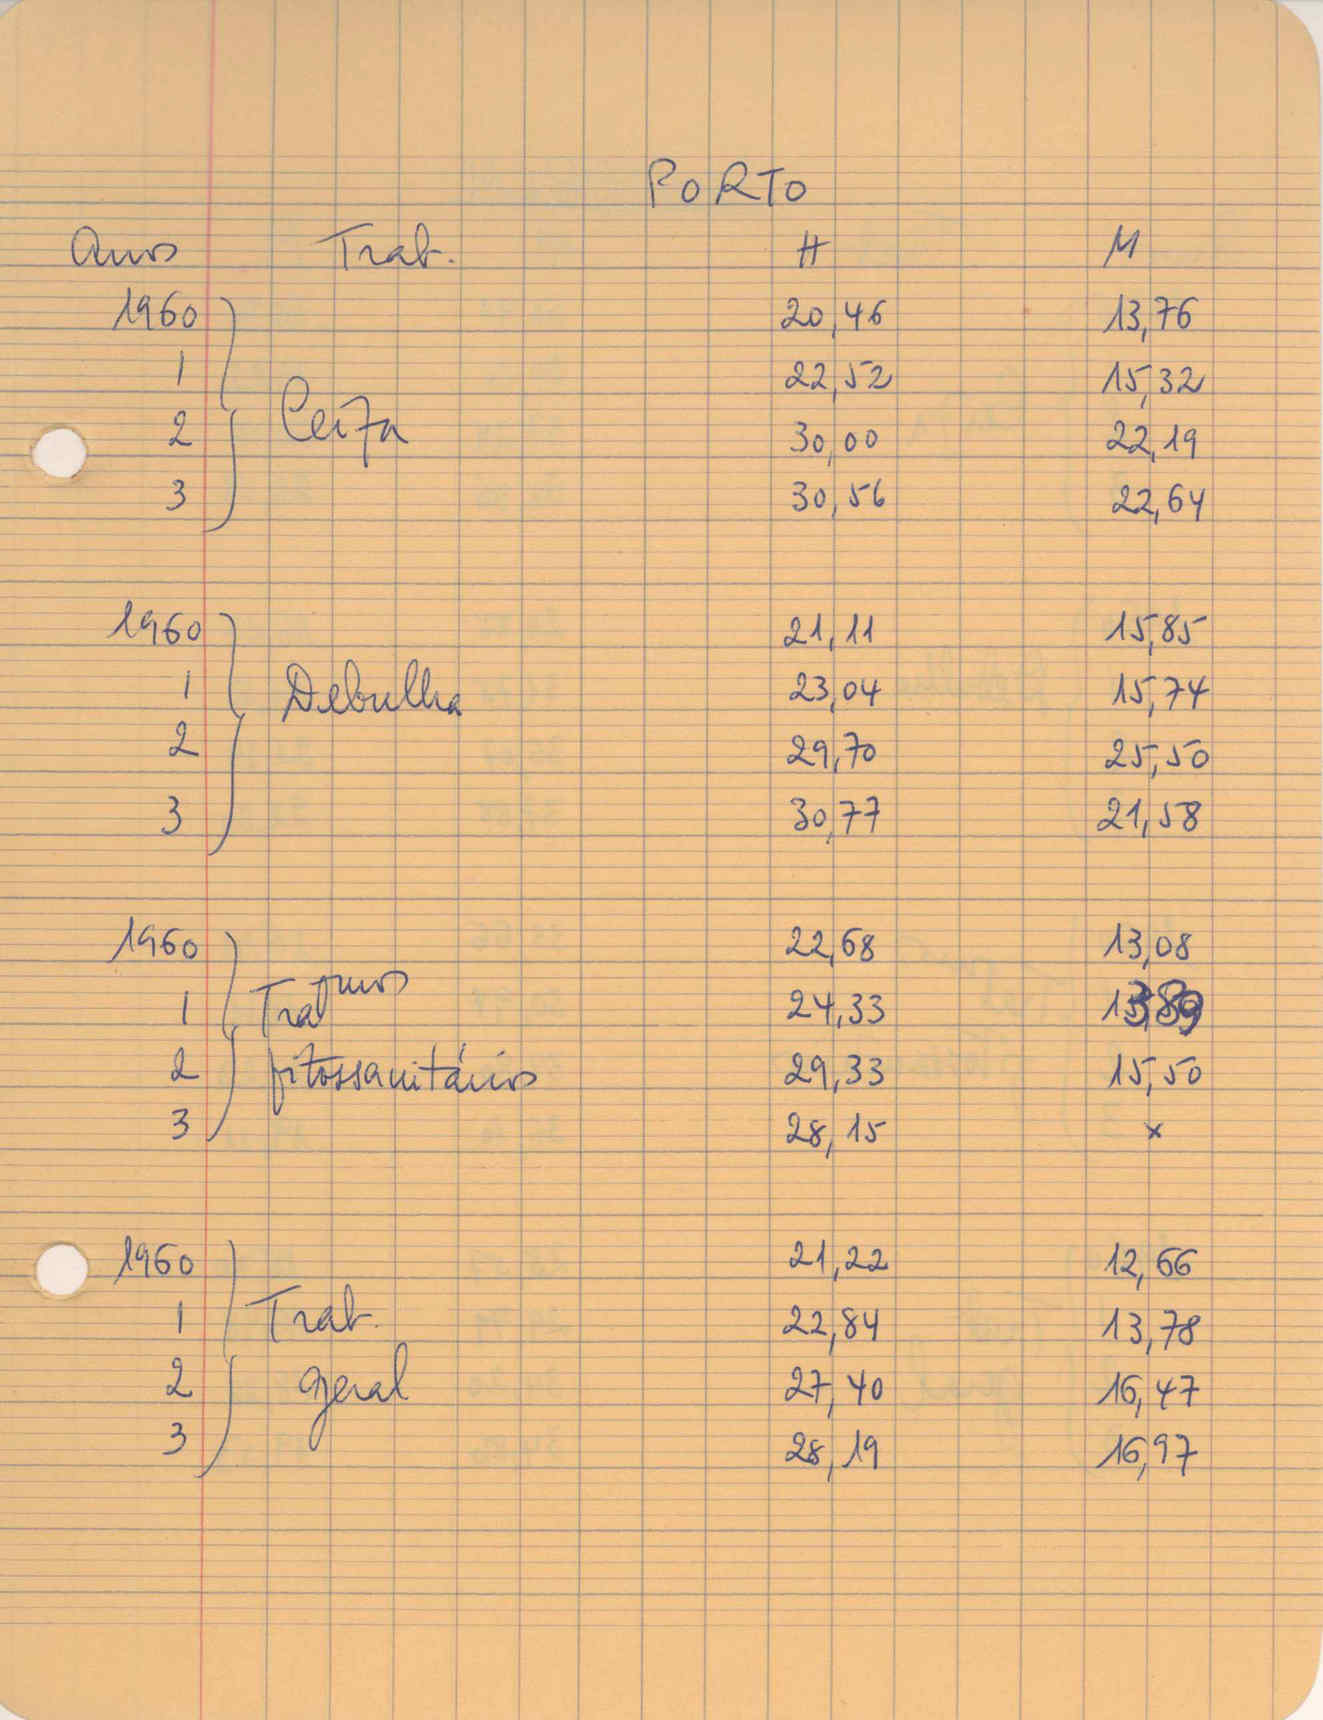 PORTO
Anos Trab. H M
1960 20,46 13,76
1 22,52 15,32
Ceifa
2 30,00 22,19
3 30,56 22,64
1960 21,11 15,85
1 Debulha 23,04 15,74
2 29,70 25,50
3 30,77 21,58
1960 22,68 13,08
1 Tratmos 24,33
2 fitossanitários 29,33 15,50
3 28,15 x
1960 21,22 12,66
1 Trab. 22,84 13,78
2 geral 27,40 16,47
3 28,19 16,97